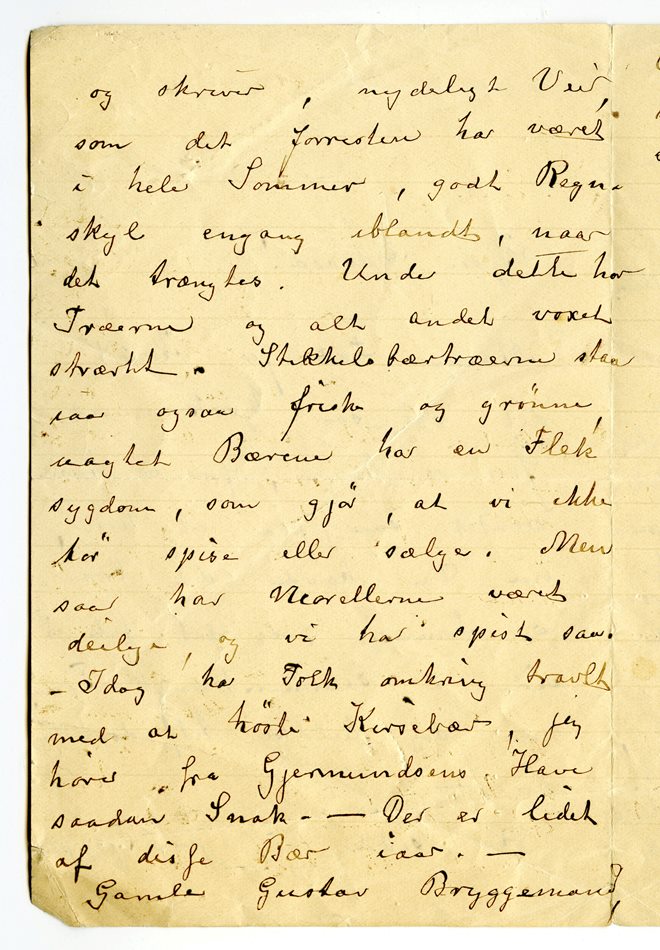 og skriver, nydeligt Veir,
som det forresten har været
i hele Sommer, godt Regn-
skyl engang iblandt, naar
det trængtes. Under dette har
Træerne og alt andet voxet
stærkt. Stikkelsbærtræerne staa
iaar ogsaa friske og grønne,
uagtet Bærene har en Flek
sygdom, som gjör, at vi ikke
tör spise eller sælge. Men
saa har Morellerne været
deilige, og vi har spist saa.
– Idag har Folk omkring travlt
med at höste Kirsebær, jeg
hörer fra Gjermundsens Have
saadan Snak. – Der er lidet
af disse Bær iaar. –
Gamle Gustav Bryggemand,